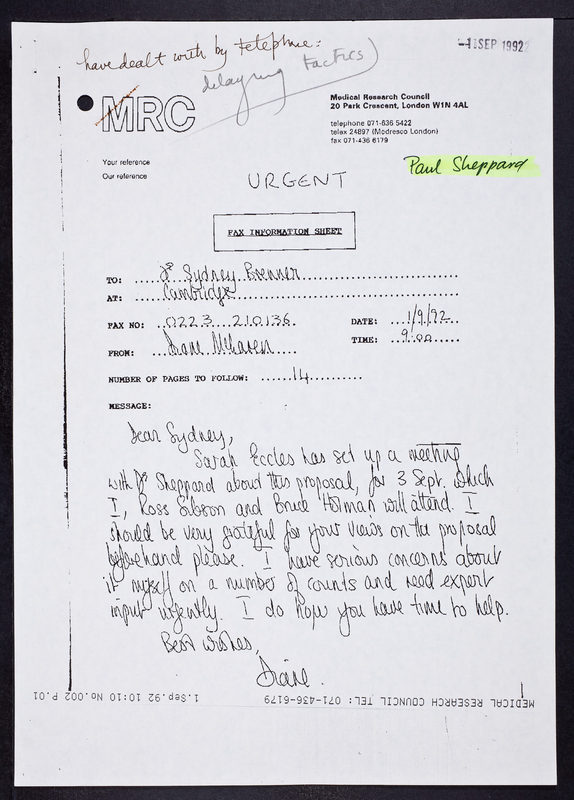 have dealt with by telephone:
delaying tactics)
-1 SEP 1992
MRC
Medical Research Council
20 Park Crescent, London W1N 4AL
telephone 071-636 5422
telex 24897 (Modresco London)
fax 071-436 6179
Your reference
Our reference
Paul Sheppard
URGENT
FAX INFORMATION SHEET
TO: Dr Sydney Brenner
AT: Cambridge
FAX NO: 0223 210136 DATE: 1/9/92
FROM: Diane McLaren TIME: 9.00
NUMBER OF PAGES TO FOLLOW: 14
MESSAGE:
Dear Sydney,
Sarah Eccles has set up a meeting
with Dr Sheppard about this proposal, for 3 Sept. which
I, Ross Sibson and Bruce Holman will attend. I
should be very grateful for your views on the proposal
beforehand please. I have serious concerns about
it myself on a number of counts and need expert
input urgently. I do hope you have time to help.
Best wishes,
Diane.
MEDICAL RESEARCH COUNCIL TEL: 071-436-6179 1.Sep.92 10:10 No.002 P.01